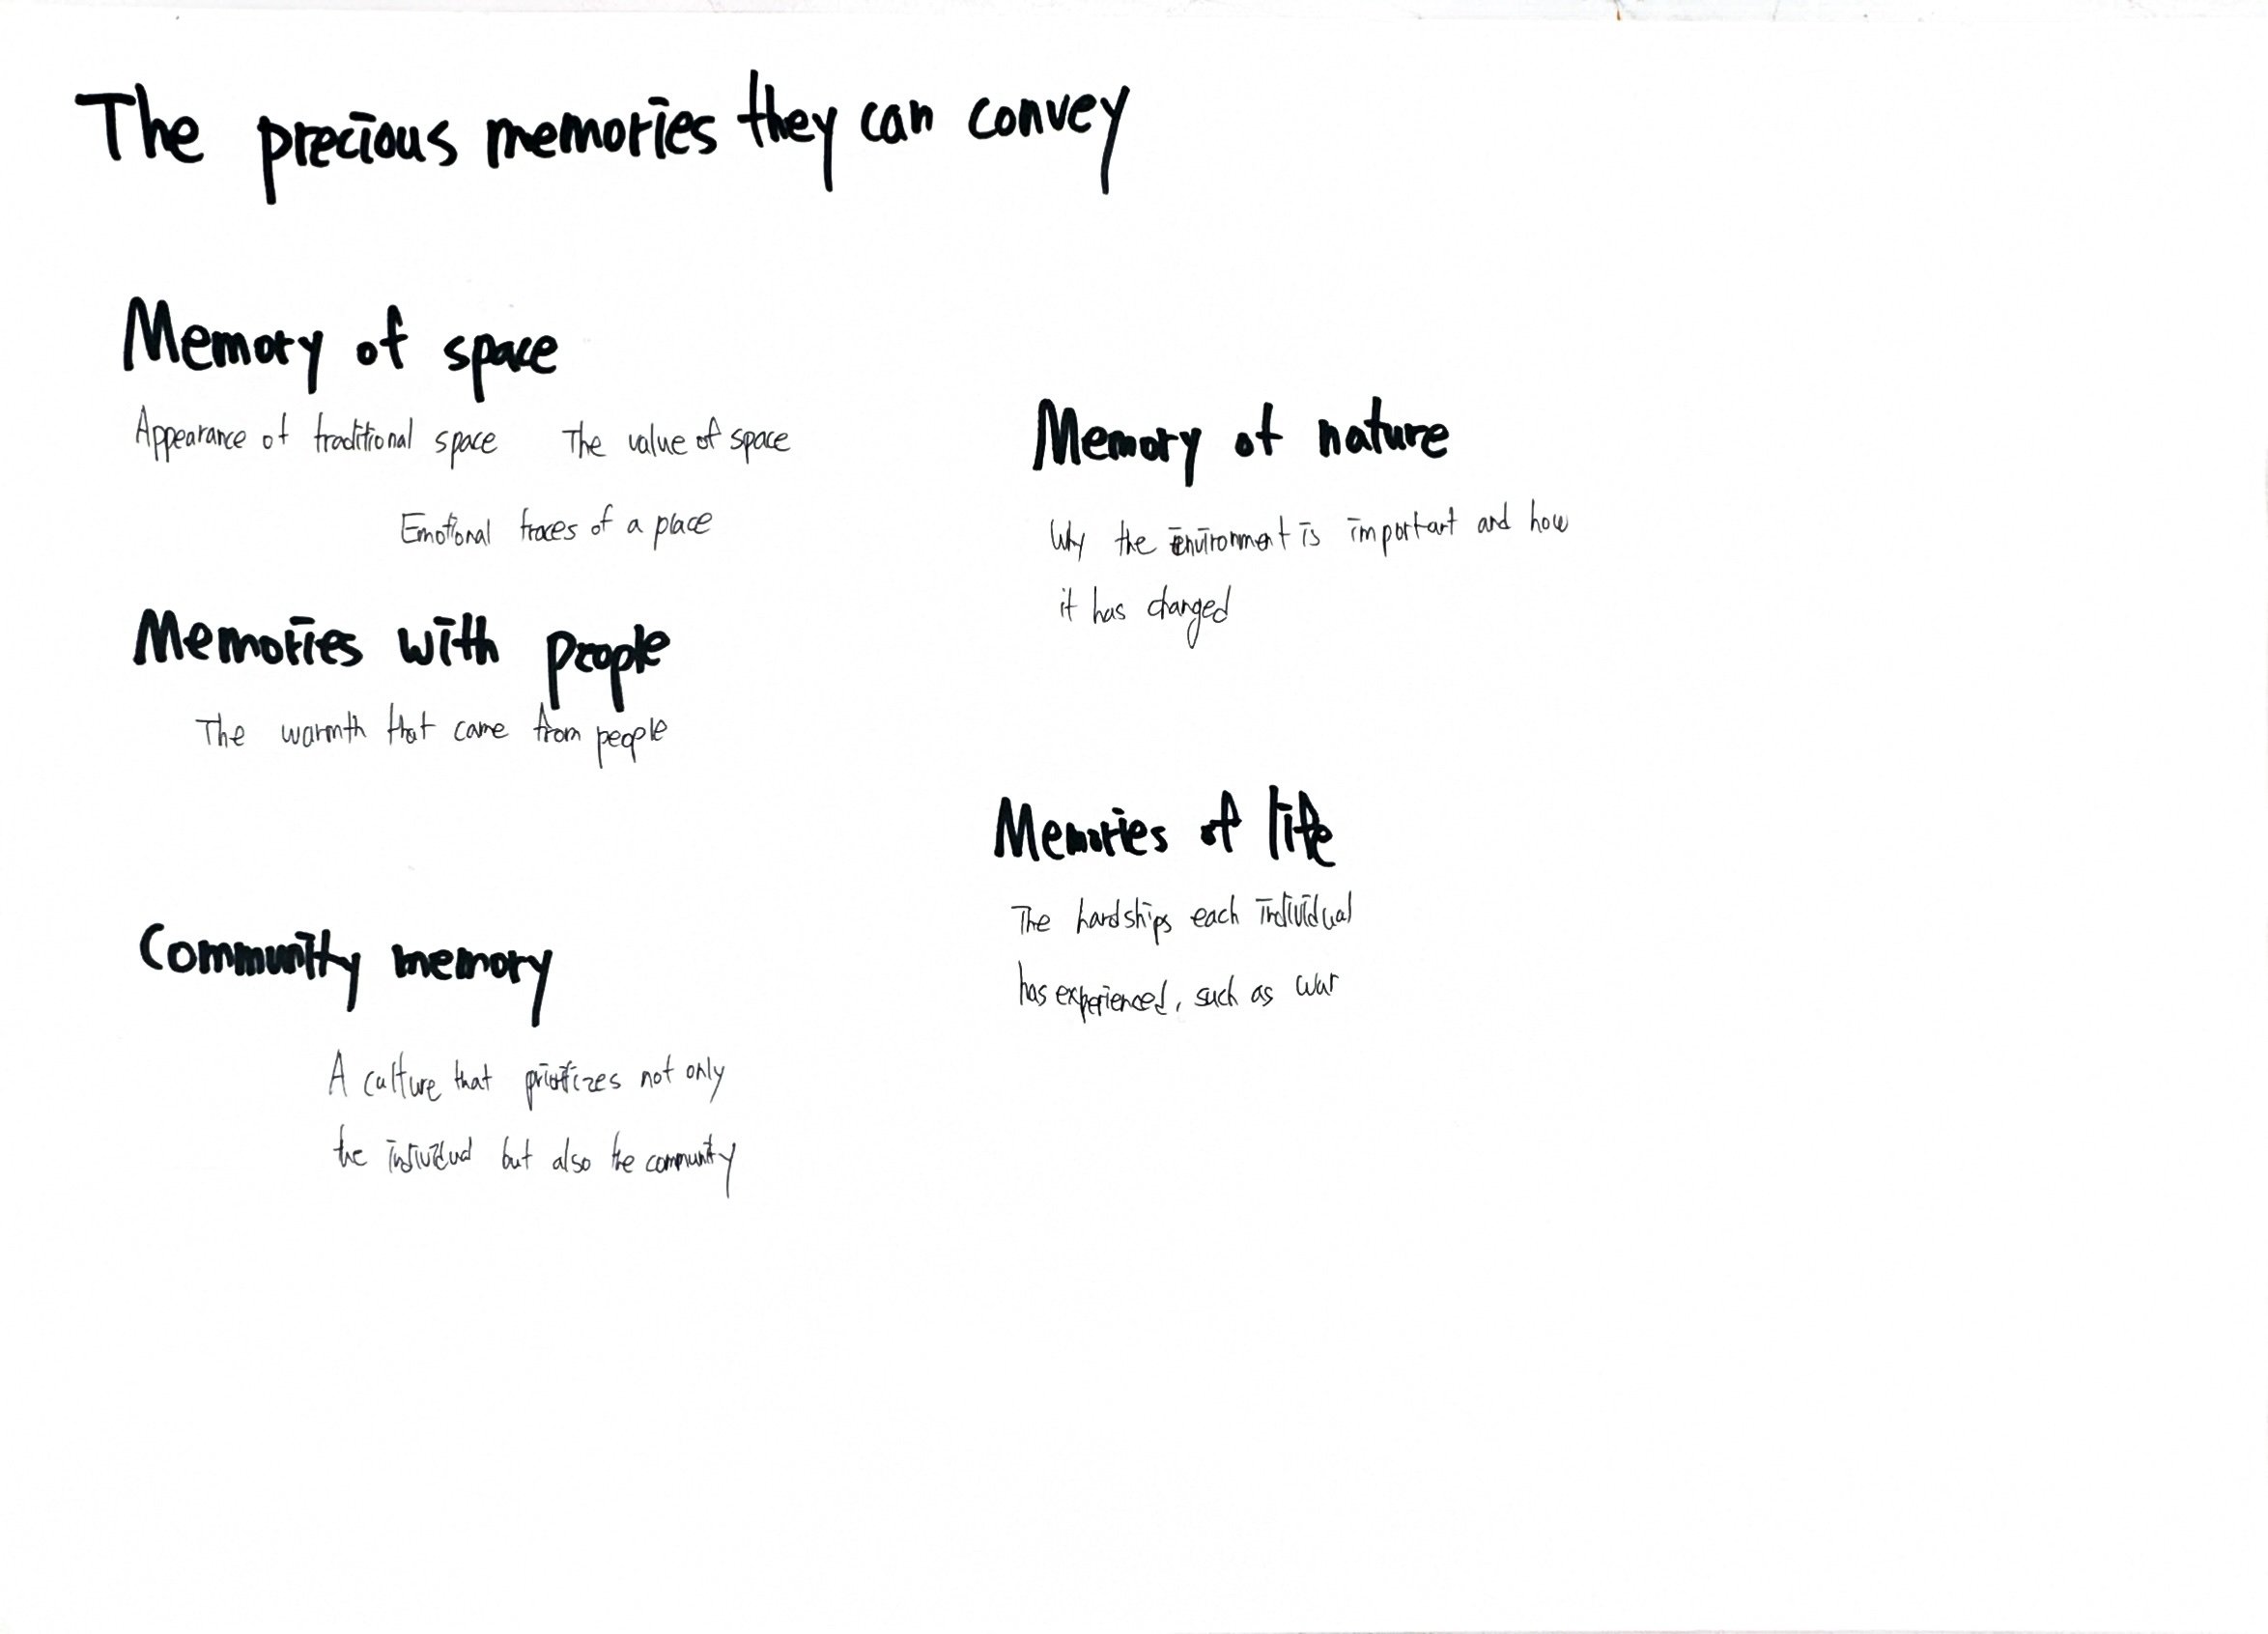 The precious memories they can convey
Memory of space
Appearance of traditional space The value of space
Emotional traces of a place
Memories with people
The warmth that came from people
Community memory
A culture that prioritizes not only
the individual but also the community
Memory of nature
Why the environment is important and how
it has changed
Memories of life
The hardships each individual
has experienced, such as war